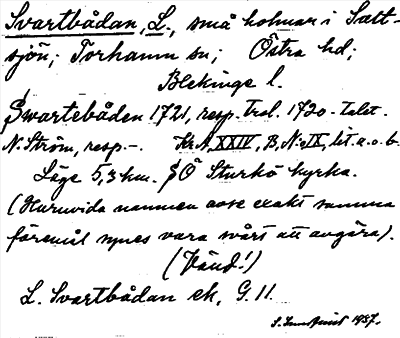 Svartbådan, L., små holmar i Satt-
sjön; Torhamn sn; Östra hd;
Blekinge l.
Swartebåden 1721, resp. trol. 1720-talet.
N. Ström, resp. –. Kr.A. XXIV, B, N:o IX, lit. a. o. b.
Läge 5,3 km. SO Sturkö kyrka.
(Huruvida namnen avse exakt samma
föremål synes vara svårt att avgöra).
(Vänd!)
L. Svartbådan ek, G. 11.
1937.